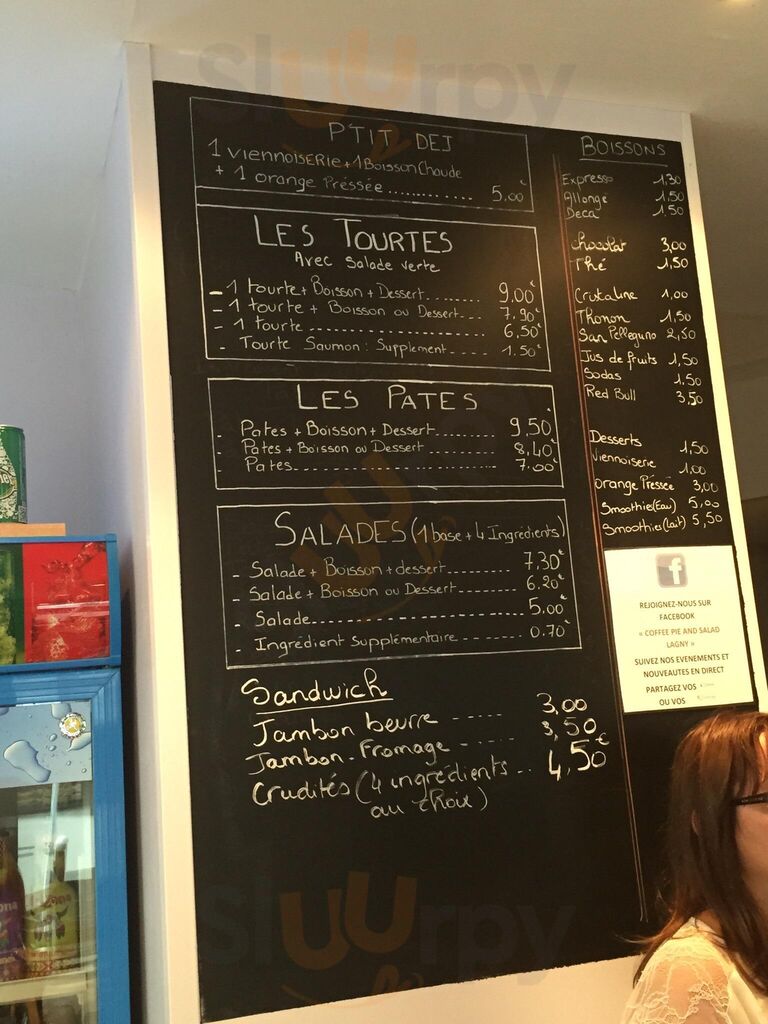 P'TIT DEJ
1 VIENNOISERIE + 1 Boisson Chaude
+ 1 orange Préssée.............. 5,00
LES TOURTES
Avec Salade verte
- 1 tourte + Boisson + Dessert........ 9.00€
- 1 tourte + Boisson ou Dessert.... 7.90€
- 1 tourte ........................ 6,50€
- Tourte Saumon : Supplement..... 1.50€
LES PATES
- Pates + Boisson + Dessert.......... 9,50€
- Pates + Boisson ou Dessert.......... 8,40€
- Pates.............................. 7.00€
SALADES (1 base + 4 Ingrédients)
- Salade + Boisson + dessert......... 7.30€
- Salade + Boisson ou Dessert........ 6,20€
- Salade............................ 5.00€
- Ingredient Supplémentaire ........ 0.70€
Sandwich
Jambon beurre ----- 3,00
Jambon-Fromage ----- 3,50
Crudités (4 ingrédients .. 4,50€
au choix)
BOISSONS
Expresso 1,30
Allongé 1,50
Deca 1,50
Chocolat 3,00
Thé 1,50
Cristaline 1,00
Thonon 1,50
San Pellegrino 2,50
Jus de fruits 1,50
Sodas 1.50
Red Bull 3,50
Desserts 1,50
Viennoiserie 1,00
Orange Préssée 3,00
Smoothie (Eau) 5,00
Smoothies (lait) 5,50
f
REJOIGNEZ-NOUS SUR
FACEBOOK
« COFFEE PIE AND SALAD
LAGNY »
SUIVEZ NOS EVENEMENTS ET
NOUVEAUTES EN DIRECT
PARTAGEZ VOS
OU VOS
Sluurpy
Sluurpy